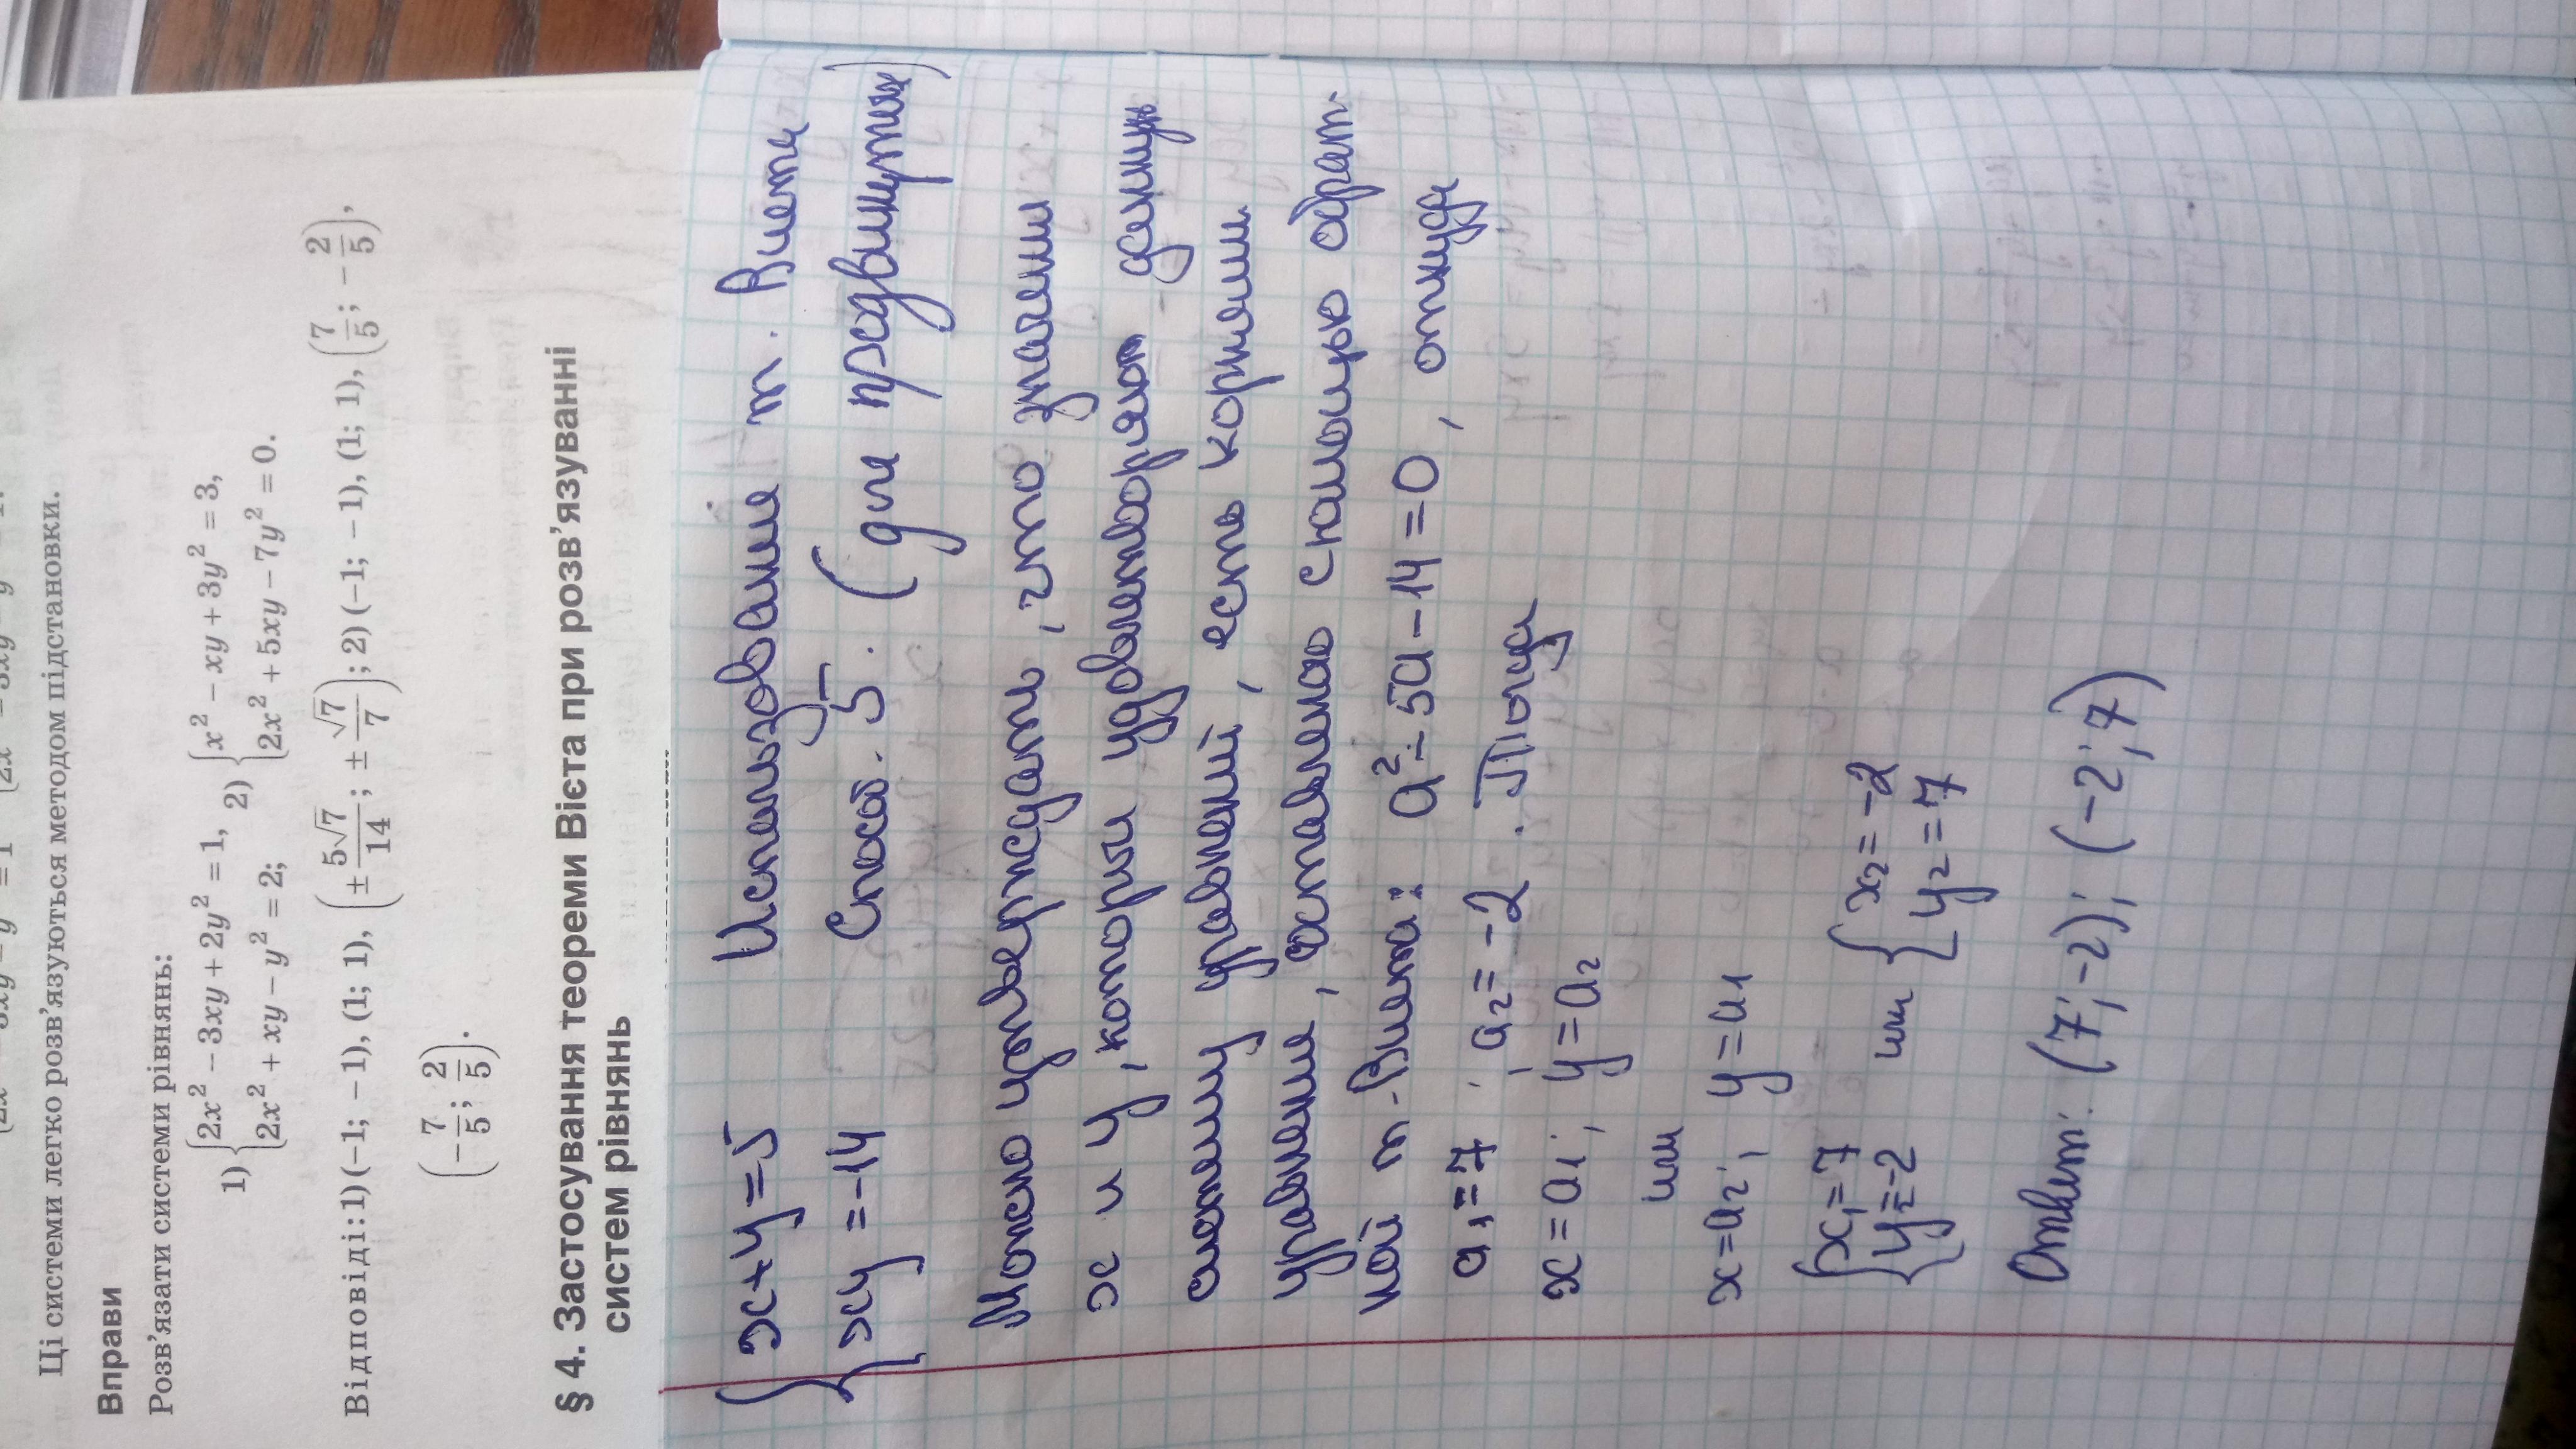 Ці системи легко розв’язуються методом підстановки.
Вправи
Розв’язати системи рівнянь:
1) { 2x² − 3xy + 2y² = 1, 2) { x² − xy + 3y² = 3,
2x² + xy − y² = 2; 2x² + 5xy − 7y² = 0.
Відповіді: 1) (−1; −1), (1; 1), (± 5√7/14; ± √7/7); 2) (−1; −1), (1; 1), (7/5; −2/5),
(−7/5; 2/5).
§ 4. Застосування теореми Вієта при розв’язуванні
систем рівнянь
{ x+y=5 Использование т. Виета
xy=-14 Способ. 5. (для продвинутых)
Можно утверждать, что значении
x и y, которы удовлетворяют данную
систему уравнений, есть корнями
уравнение, составленою спомощью обрат-
ной т. Виета: a²-5a-14=0, откуда
a₁=7; a₂=-2. Тогда
x=a₁; y=a₂
или
x=a₂; y=a₁
{ x₁=7 или { x₂=-2
y₂=-2 y₂=7
Ответ: (7;-2); (-2;7)